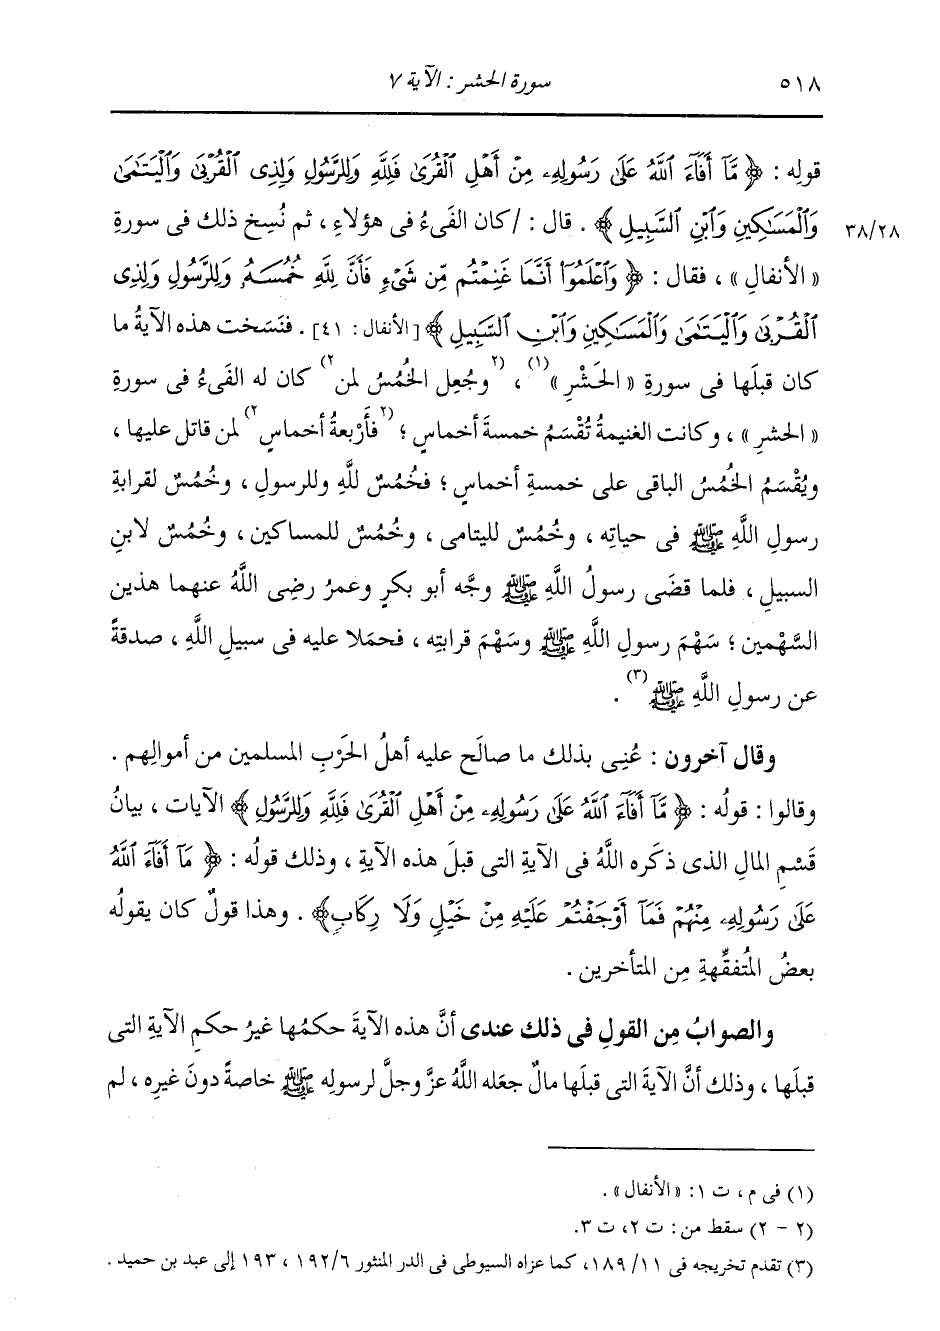 ٥١٨ سورة الحشر : الآية ٧
قولِه : ﴿ مَّآ أَفَآءَ ٱللَّهُ عَلَىٰ رَسُولِهِۦ مِنْ أَهْلِ ٱلْقُرَىٰ فَلِلَّهِ وَلِلرَّسُولِ وَلِذِى ٱلْقُرْبَىٰ وَٱلْيَتَٰمَىٰ
وَٱلْمَسَٰكِينِ وَٱبْنِ ٱلسَّبِيلِ ﴾ . قال : /كان الفَىءُ فى هؤلاءِ ، ثم نُسِخ ذلك فى سورةِ ٣٨/٢٨
« الأنفالِ » ، فقال : ﴿ وَٱعْلَمُوٓا۟ أَنَّمَا غَنِمْتُم مِّن شَىْءٍ فَأَنَّ لِلَّهِ خُمُسَهُۥ وَلِلرَّسُولِ وَلِذِى
ٱلْقُرْبَىٰ وَٱلْيَتَٰمَىٰ وَٱلْمَسَٰكِينِ وَٱبْنِ ٱلسَّبِيلِ ﴾ [ الأنفال : ٤١] . فنَسَخت هذه الآيةُ ما
كان قبلَها فى سورةِ « الحَشْرِ »(١) ، (٢وجُعِل الخُمُسُ لمن٢) كان له الفَىءُ فى سورةِ
« الحشرِ » ، وكانت الغنيمةُ تُقْسَمُ خمسةَ أخماسٍ ؛ (٢فأَرْبعةُ أخماسٍ٢) لمن قاتل عليها ،
ويُقْسَمُ الخُمُسُ الباقى على خمسةِ أخماسٍ ؛ فخُمُسٌ للَّهِ وللرسولِ ، وخُمُسٌ لقرابةِ
رسولِ اللَّهِ ﷺ فى حياتِه ، وخُمُسٌ لليتامى ، وخُمُسٌ للمساكين ، وخُمُسٌ لابنِ
السبيلِ ، فلما قضَى رسولُ اللَّهِ ﷺ وجَّه أبو بكرٍ وعمرُ رضِى اللَّهُ عنهما هذين
السَّهْمين ؛ سَهْمَ رسولِ اللَّهِ ﷺ وسَهْمَ قرابتِه ، فحمَلا عليه فى سبيلِ اللَّهِ ، صدقةً
عن رسولِ اللَّهِ ﷺ(٣) .
وقال آخرون : عُنِى بذلك ما صالَح عليه أهلُ الحَرْبِ المسلمين من أموالِهم .
وقالوا : قولُه : ﴿ مَّآ أَفَآءَ ٱللَّهُ عَلَىٰ رَسُولِهِۦ مِنْ أَهْلِ ٱلْقُرَىٰ فَلِلَّهِ وَلِلرَّسُولِ ﴾ الآيات ، بيانُ
قَسْمِ المالِ الذى ذكَره اللَّهُ فى الآيةِ التى قبلَ هذه الآيةِ ، وذلك قولُه : ﴿ مَآ أَفَآءَ ٱللَّهُ
عَلَىٰ رَسُولِهِۦ مِنْهُمْ فَمَآ أَوْجَفْتُمْ عَلَيْهِ مِنْ خَيْلٍ وَلَا رِكَابٍ ﴾ . وهذا قولٌ كان يقولُه
بعضُ المُتفقِّهةِ مِن المتأخرين .
والصوابُ مِن القولِ فى ذلك عندى أنَّ هذه الآيةَ حكمُها غيرُ حكمِ الآيةِ التى
قبلَها ، وذلك أنَّ الآيةَ التى قبلَها مالٌ جعَله اللَّهُ عزَّ وجلَّ لرسولِه ﷺ خاصةً دونَ غيرِه ، لم
(١) فى م ، ت ١: « الأنفال » .
(٢ - ٢) سقط من : ت ٢، ت ٣.
(٣) تقدم تخريجه فى ١٨٩/١١، كما عزاه السيوطى فى الدر المنثور ١٩٢/٦ ، ١٩٣ إلى عبد بن حميد .